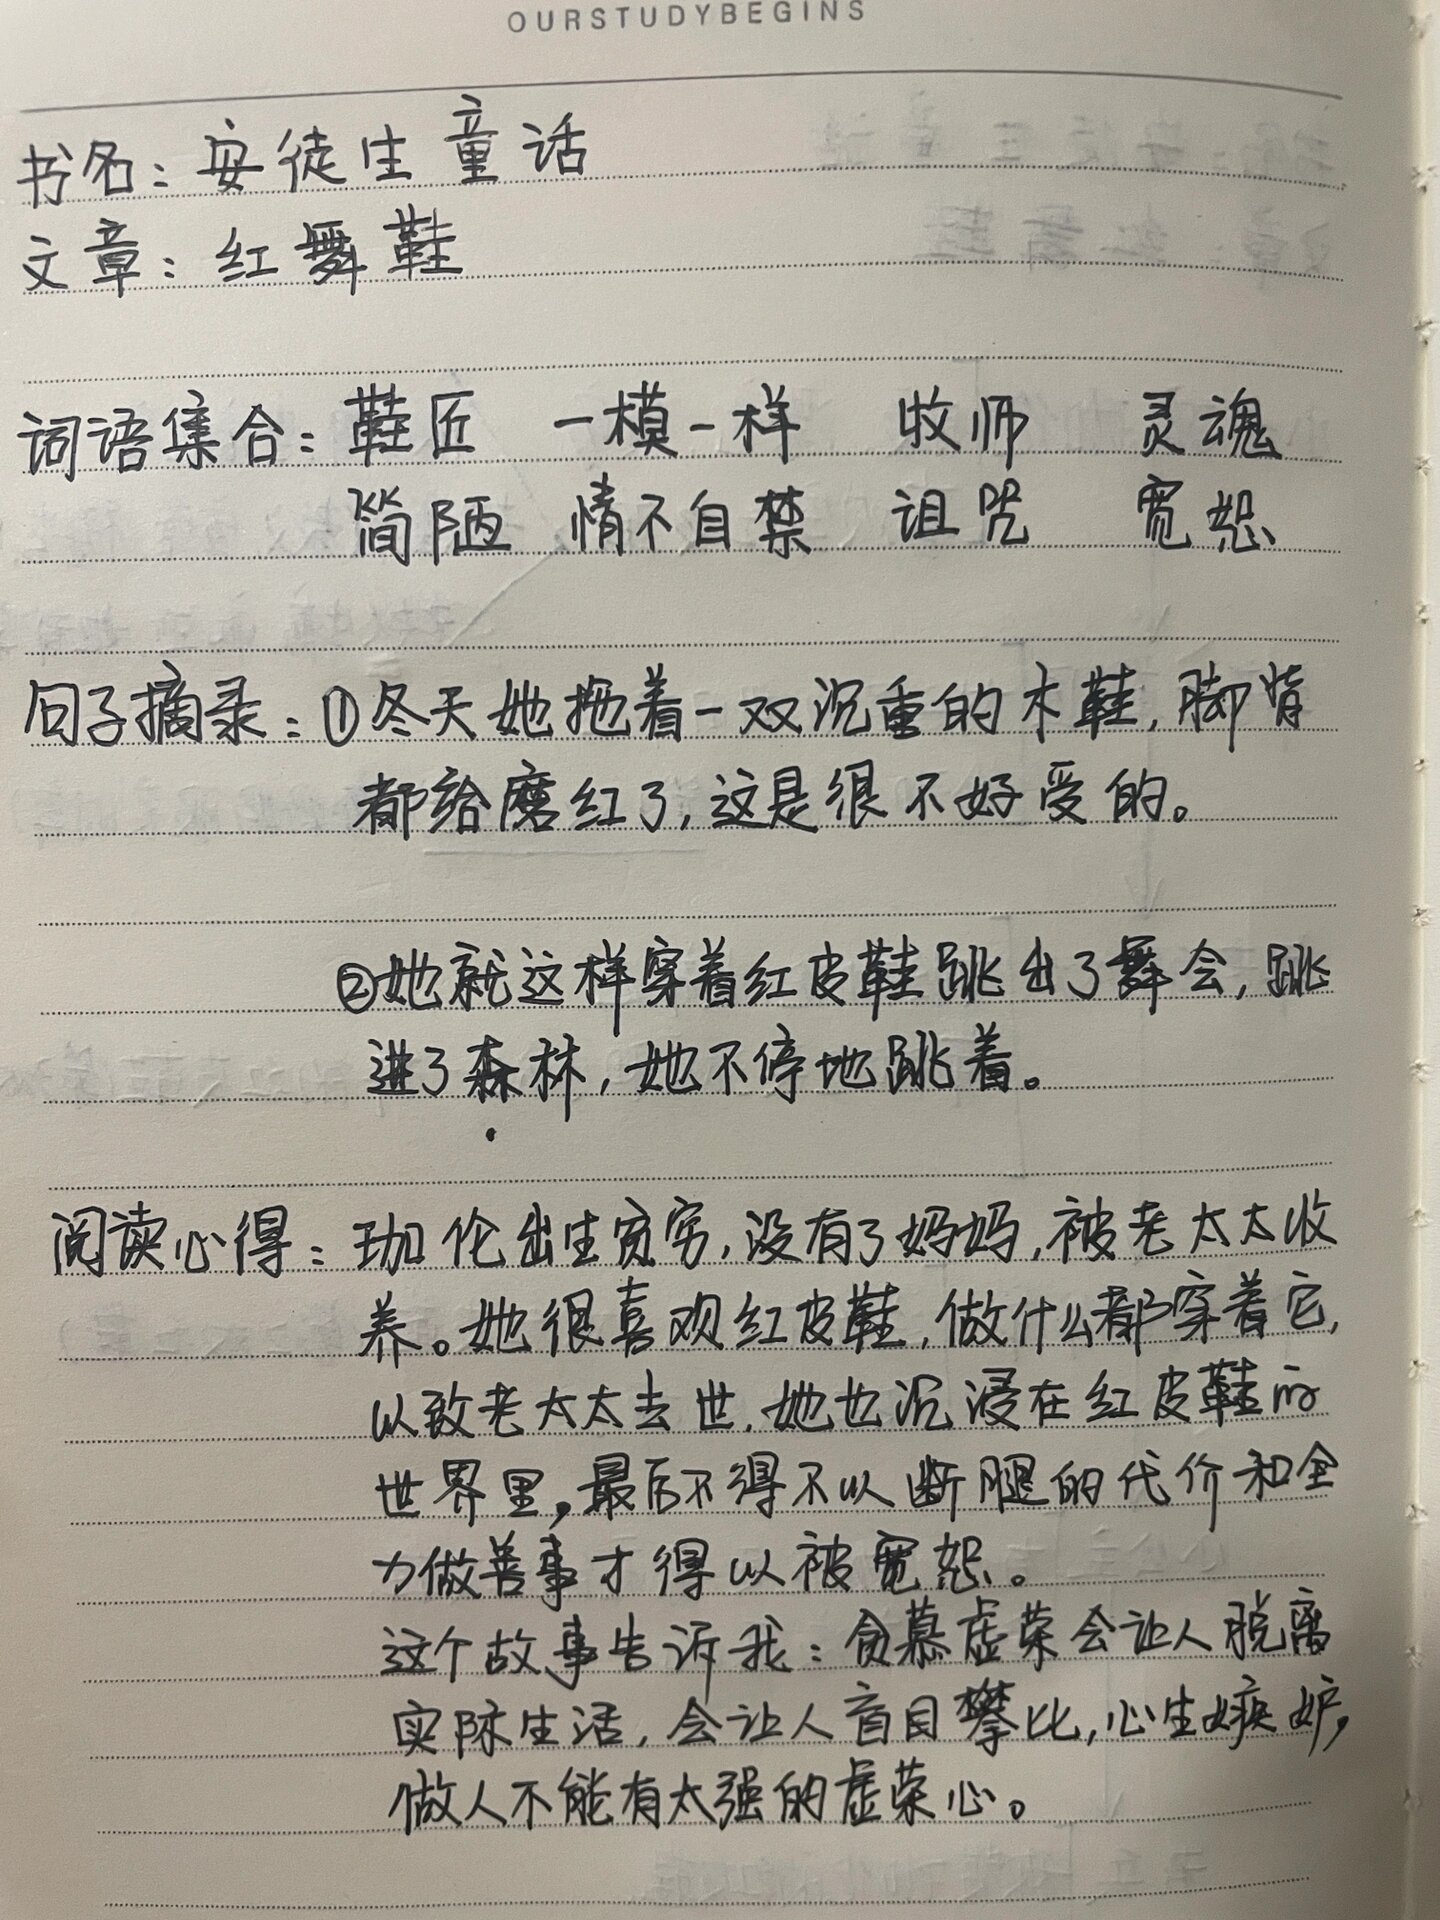 OURSTUDYBEGINS
书名：安徒生童话
文章：红舞鞋
词语集合：鞋匠 一模一样 牧师 灵魂
简陋 情不自禁 诅咒 宽恕
句子摘录：①冬天她拖着一双沉重的木鞋，脚背
都给磨红了，这是很不好受的。
②她就这样穿着红皮鞋跳出了舞会，跳
进了森林，她不停地跳着。
阅读心得：珈伦出生贫穷，没有了妈妈，被老太太收
养。她很喜欢红皮鞋，做什么都穿着它，
以致老太太去世，她也沉浸在红皮鞋的
世界里，最后不得不以断腿的代价和全
力做善事才得以被宽恕。
这个故事告诉我：贪慕虚荣会让人脱离
实际生活，会让人盲目攀比，心生嫉妒，
做人不能有太强的虚荣心。